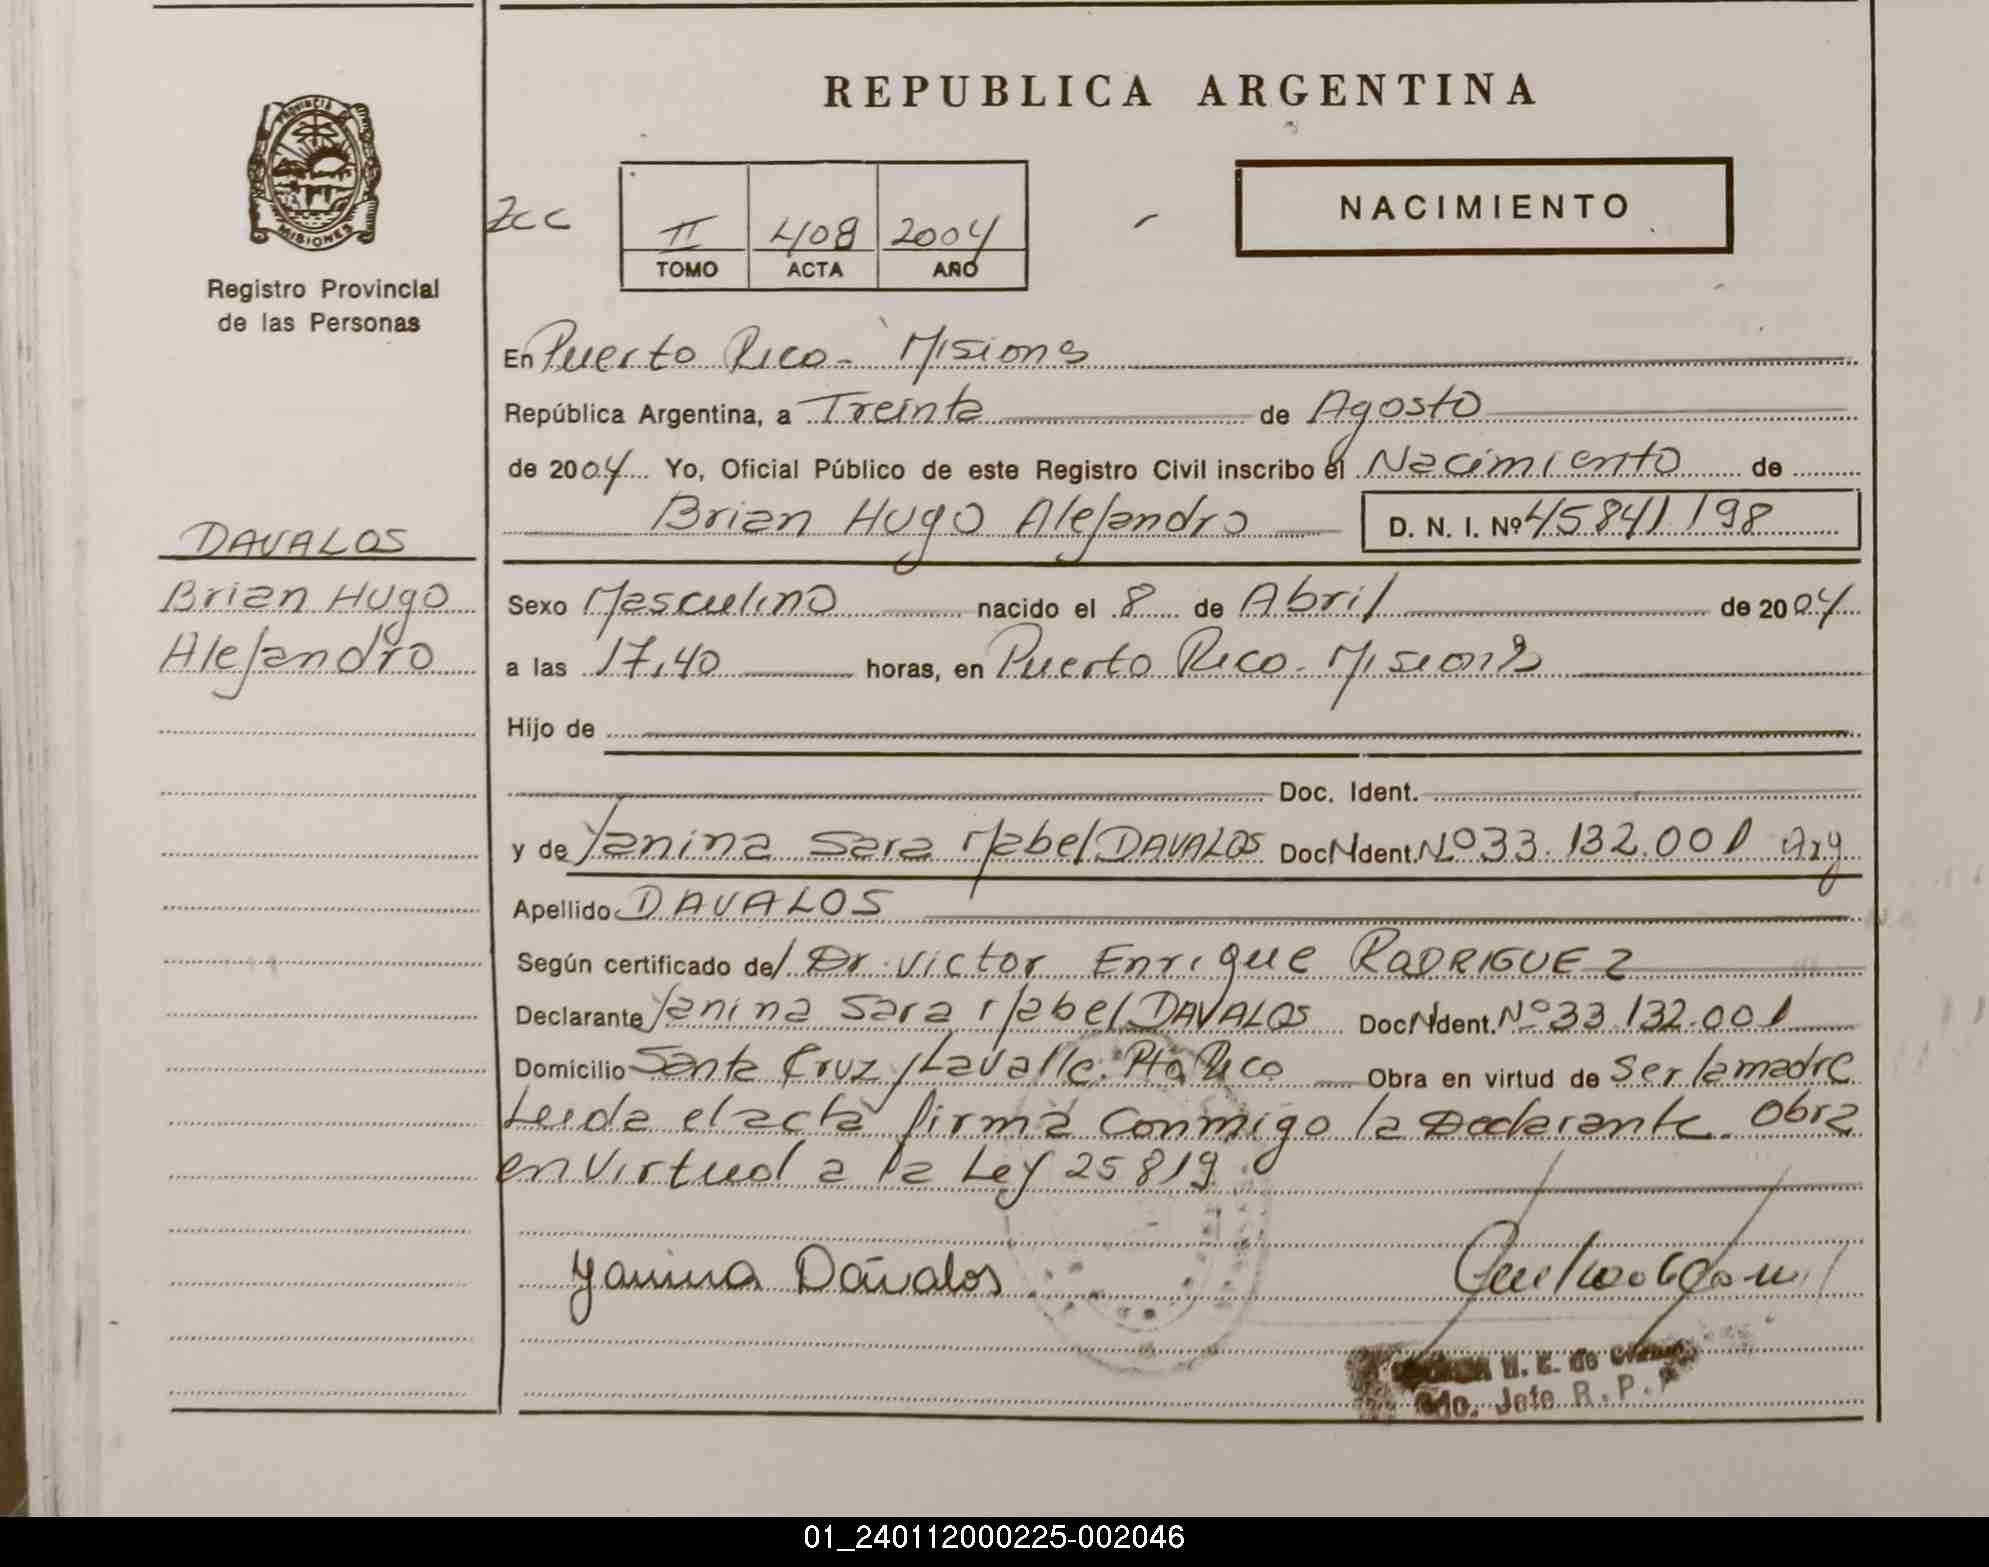 REPUBLICA ARGENTINA
PROVINCIA
MISIONES
Registro Provincial
de las Personas
ZCC
II 408 2004
TOMO ACTA AÑO
NACIMIENTO
En Puerto Rico - Misiones
República Argentina, a Treinta de Agosto
de 2004 Yo, Oficial Público de este Registro Civil inscribo el Nacimiento de
Brian Hugo Alejandro D. N. I. Nº 45841198
DAVALOS
Brian Hugo
Alejandro
Sexo Masculino nacido el 8 de Abril de 2004
a las 17,40 horas, en Puerto Rico - Misiones
Hijo de
Doc. Ident.
y de Yanina Sara Mabel DAVALOS Doc N Ident. Nº 33.132.001 Arg
Apellido DAVALOS
Según certificado de/ Dr. Victor Enrique RODRIGUEZ
Declarante Yanina Sara Mabel DAVALOS Doc N Ident. Nº 33.132.001
Domicilio Santa Cruz y Lavalle. Pto Rico Obra en virtud de ser la madre
Leida el acta firma conmigo la Declarante. Obra
en Virtud a la Ley 25819.
Yanina Dávalos
H. E. de
Jefe R. P.
01_240112000225-002046